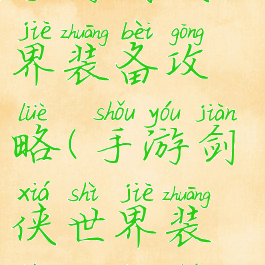 jiè zhuāng bèi gōng
界装备攻
lüè ( shǒu yóu jiàn
略(手游剑
xiá shì jiè zhuāng
侠世界装